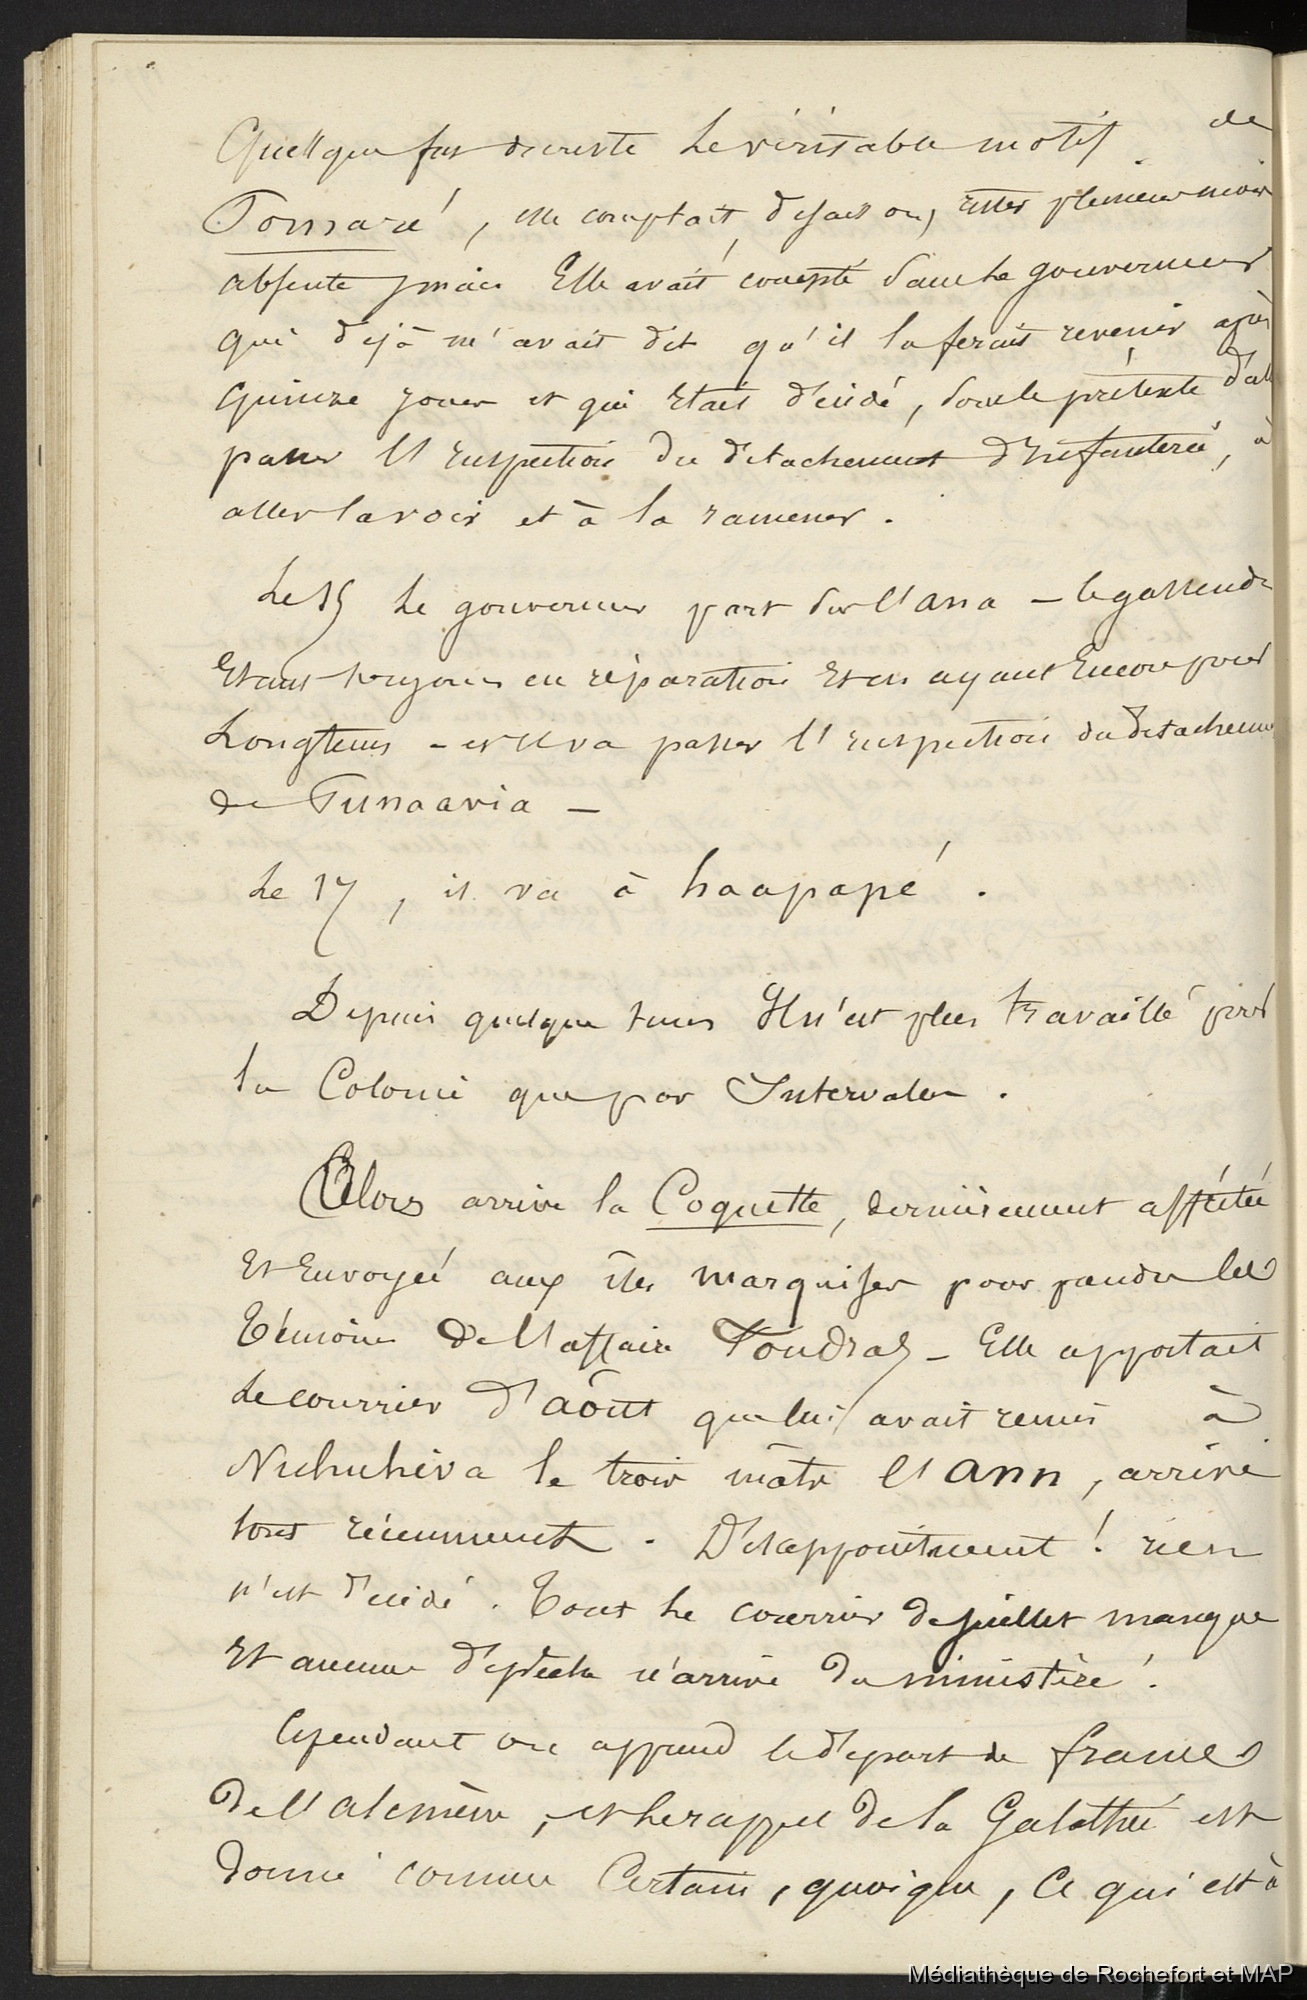 Quel que fut du reste le véritable motif de
Pomaré, elle comptait, disait on, rester plusieurs mois
absente mais Elle avait compté sans le gouverneur
qui déjà m'avait dit qu'il la ferait revenir après
quinze jours et qui était décidé, sous le prétexte d'al
passer l'Inspection du détachement d'Infanterie, à
aller la voir et à la ramener.
Le 15 le gouverneur part sur l'ana - le gassendi
Etant toujours en réparation Et en ayant Encore pour
Longtems - et il va passer l'inspection du détachemen
de Punaavia -
Le 17, il va à haapapé.
Depuis quelque tems Il n'est plus travaillé pour
la Colonie que par Intervales.
Alors arrive la Coquette, dernièrement affrétée
Et Envoyée aux îles marquises pour prendre les
Témoins De l'affaire - Elle apportait
Le courrier d'août que lui avait remis à
Nuhuhiva le trois mâts l'ann, arrivé
tout récemment. Désappointment! rien
n'est décidé. Tout le courrier de juillet manque
Et aucune dépêche n'arrive du ministère!
Cependant on apprend le départ de france
De l'alcmène, et le rappel de la Galathée est
donné comme Certain, quoique, Ce qui est à
Médiathèque de Rochefort et MAP